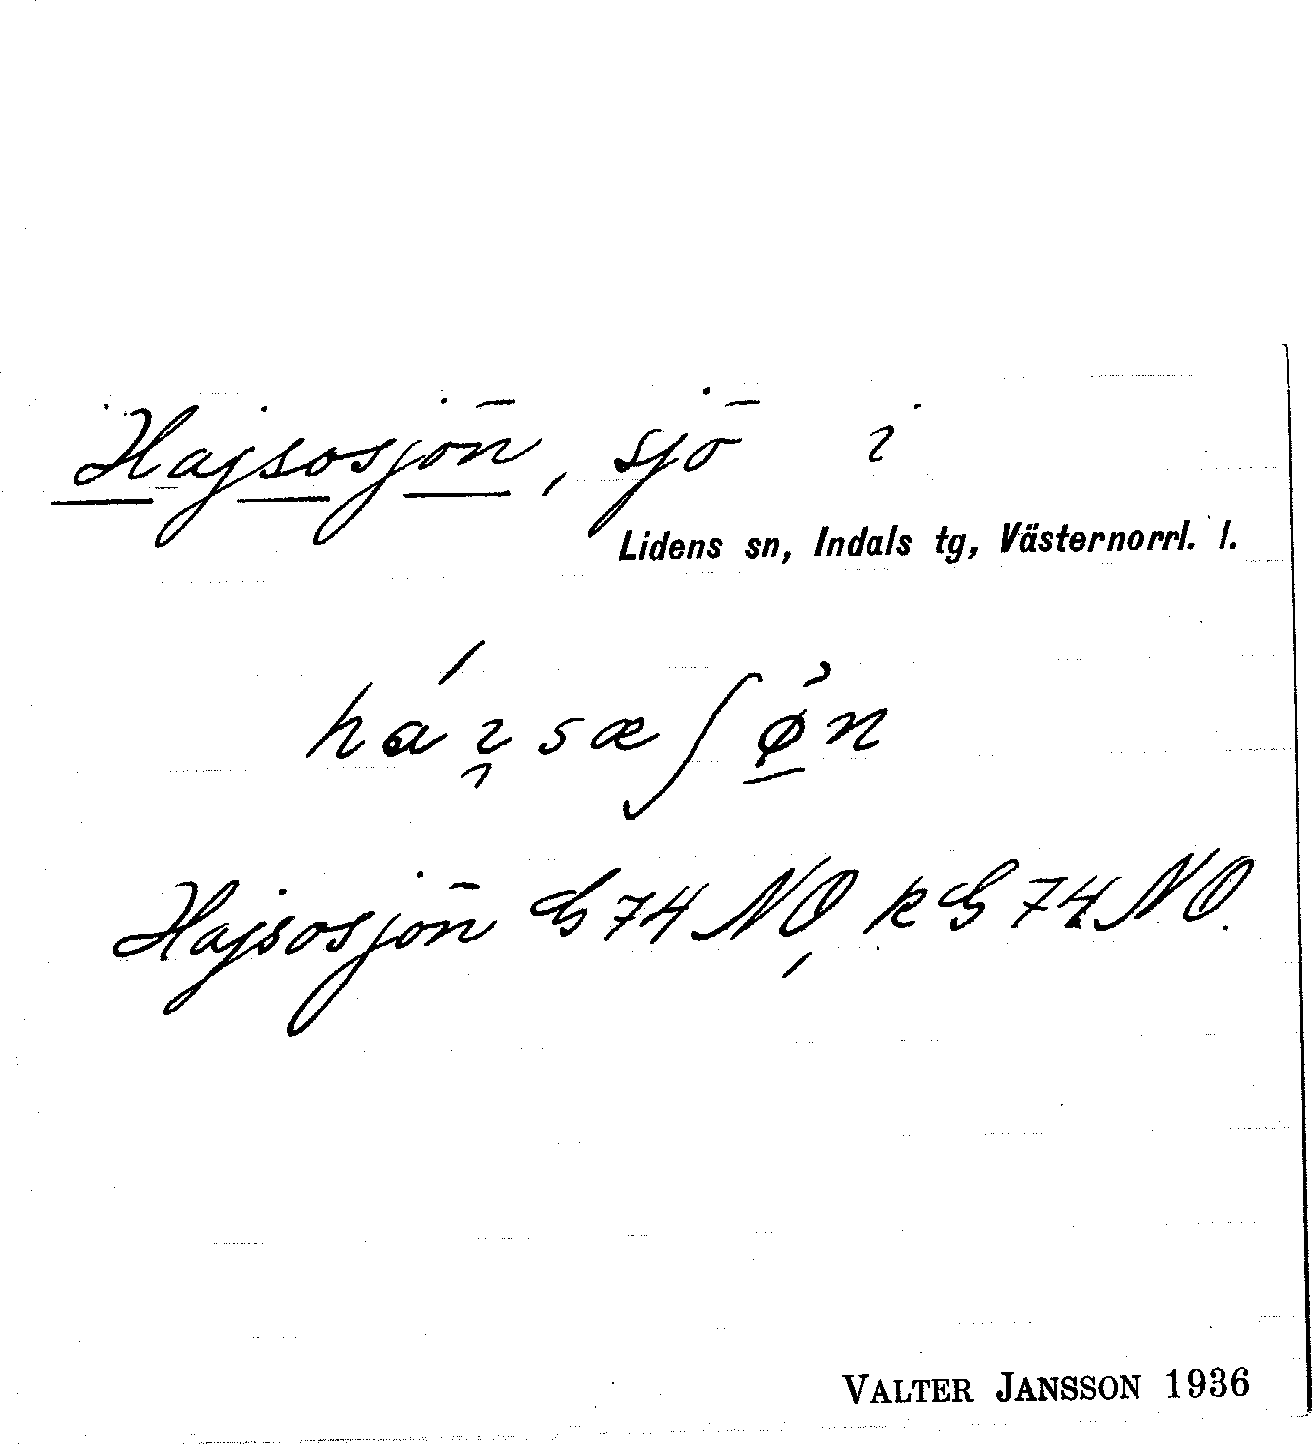 Hajsosjön, sjö i
Lidens sn, Indals tg, Västernorrl. l.
Hajsosjön G 74 NO, k G 74 NO.
VALTER JANSSON 1936